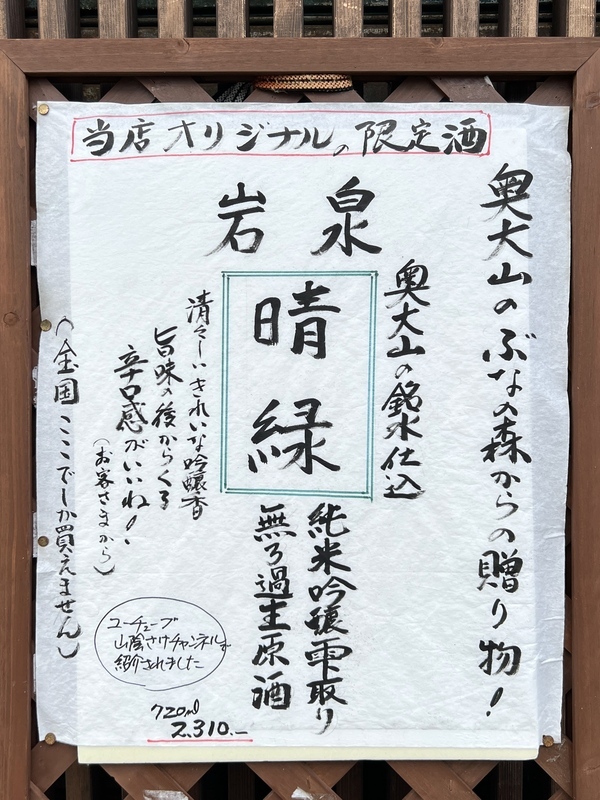 当店オリジナルの限定酒
奥大山のぶなの森からの贈り物!
岩泉
奥大山の銘水仕込
晴緑
純米吟醸雫取り
無ろ過生原酒
清々しいきれいな吟醸香
旨味の後からくる
辛口感がいいね!!
(お客さまから)
(全国ここでしか買えません)
ユーチューブ
山陰さけチャンネルで
紹介されました
720ml
2.310.-